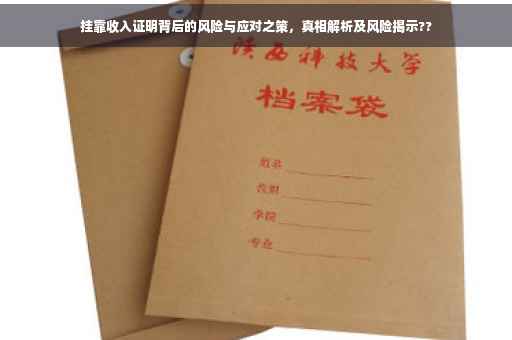 挂靠收入证明背后的风险与应对之策，真相解析及风险揭示??
陕西科技大学
档案袋
姓名
学院
专业